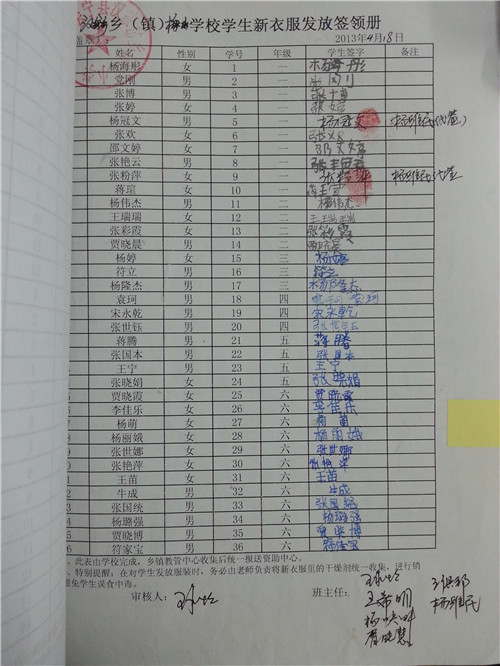 乡（镇）学校学生新衣服发放签领册
2013年4月18日
姓名 性别 学号 年级 学生签字 备注
杨海彤 女 1 一 杨海彤
党刚 男 2 一
张博 男 3 一 张博
张婷 女 4 一 张婷
杨冠文 男 5 一 杨冠文 杨维民(代签)
张欢 女 6 一 张欢
邵文婷 女 7 一 邵文婷
张艳云 男 8 一
张粉萍 女 9 一 张粉萍 杨维民代签
蒋瑄 女 10 一
杨伟杰 男 11 二 杨伟杰
王瑞瑞 女 12 二 王瑞瑞
张彩霞 女 13 二 张彩霞
贾晓晨 男 14 二
杨婷 女 15 三 杨婷
符立 男 16 三 符立
杨隆杰 男 17 三 杨隆杰
袁珂 男 18 四 袁珂
宋永乾 男 19 四 宋永乾
张世钰 男 20 四 张世钰
蒋腾 男 21 五 蒋腾
张国本 男 22 五 张国本
王宁 男 23 五 王宁
张晓娟 女 24 五 张晓娟
贾晓霞 女 25 六 贾晓霞
李佳乐 女 26 六 李佳乐
杨萌 女 27 六
杨丽娥 女 28 六 杨丽娥
张世娜 女 29 六 张世娜
张艳萍 女 30 六 张艳萍
王苗 女 31 六 王苗
牛成 男 32 六 牛成
张国统 男 33 六 张国统
杨璐强 男 34 六 杨璐强
贾晓博 男 35 六 贾晓博
6 符家宝 男 36 六 符家宝
、此表由学校完成，乡镇教管中心收集后统一报送资助中心。
、特别提醒：在对学生发放服装时，务必由老师负责将新衣服里的干燥剂统一收集，进行销
避免学生误食中毒。
审核人： 班主任：
王希明
杨维民